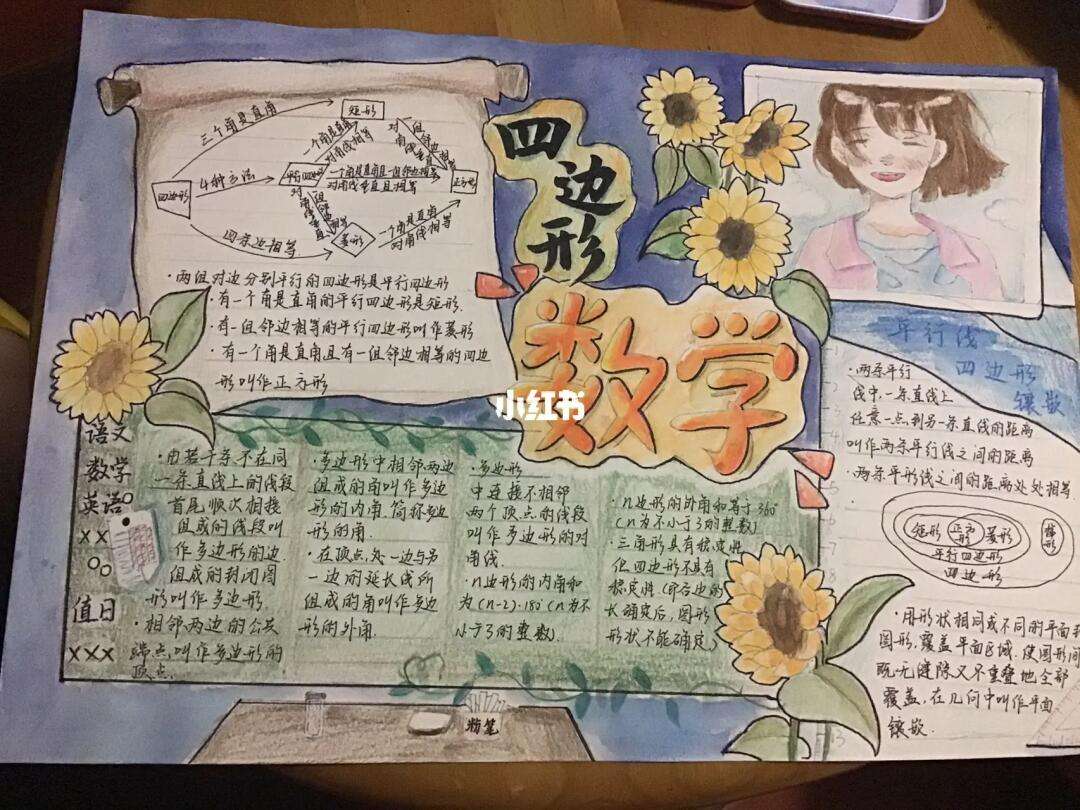 四边形
数学
小红书
三个角是直角
矩形
一个角是直角
对角线相等
四边形
4种方法
一个角是直角且一组邻边相等
对角线垂直且相等
正方形
四条边相等
菱形
一个角是直角
对角线相等
·两组对边分别平行的四边形是平行四边形
·有一个角是直角的平行四边形是矩形.
·有一组邻边相等的平行四边形叫作菱形
·有一个角是直角且有一组邻边相等的四边
形叫作正方形
语文
数学
英语
××
值日
×××
·由若干条不在同
一条直线上的线段
首尾顺次相接
组成的线段叫
作多边形的边
组成的封闭图
形叫作多边形.
·相邻两边的公共
端点叫作多边形的
顶点.
·多边形中相邻两边
组成的角叫作多边
形的内角.简称多边
形的角.
·在顶点处一边与另
一边的延长线所
组成的角叫作多边
形的外角.
·多边形
中连接不相邻
两个顶点的线段
叫作多边形的对
角线.
·n边形的内角和
为(n-2)·180°(n为不
小于3的整数)
·n边形的外角和等于360°
(n为不小于3的整数)
·三角形具有稳定性
但四边形不具有
稳定性
长确定后,图形
形状不能确定)
粉笔
平行线
四边形
镶嵌
·两条平行
线中,一条直线上
任意一点到另一条直线的距离
叫作两条平行线之间的距离
·两条平形线之间的距离处处相等.
矩形
正方形
菱形
梯形
平行四边形
四边形
·用形状相同或不同的平面
图形,覆盖平面区域.使图形间
既无缝隙又不重叠地全部
覆盖,在几何中叫作平面
镶嵌.